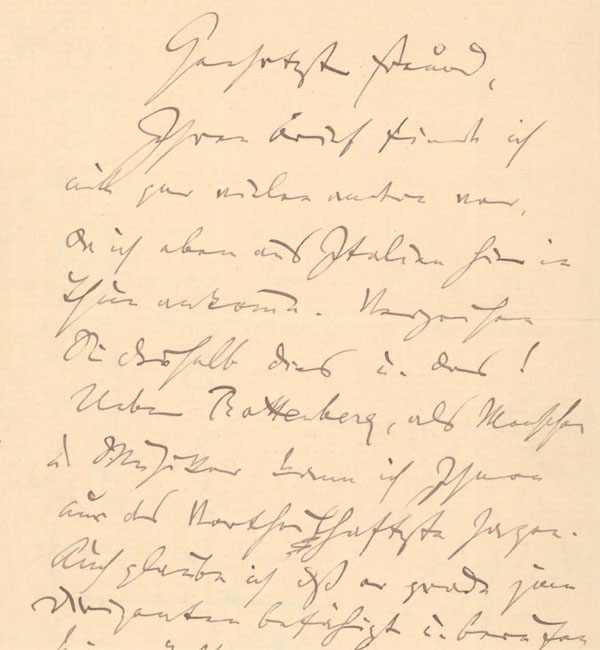 Geehrtester Freund,
Ihren Brief finde ich
mit gar vielen andren vor,
da ich eben aus Italien hier in
Thun ankomme. Verzeihen
Sie deshalb dies u. das!
Ueber Rottenberg, als Menschen
u. Musiker kann ich Ihnen
nur das Vortheilhafteste sagen.
Auch glaube ich daß er grade zum
Dirigenten befähigt u. berufen